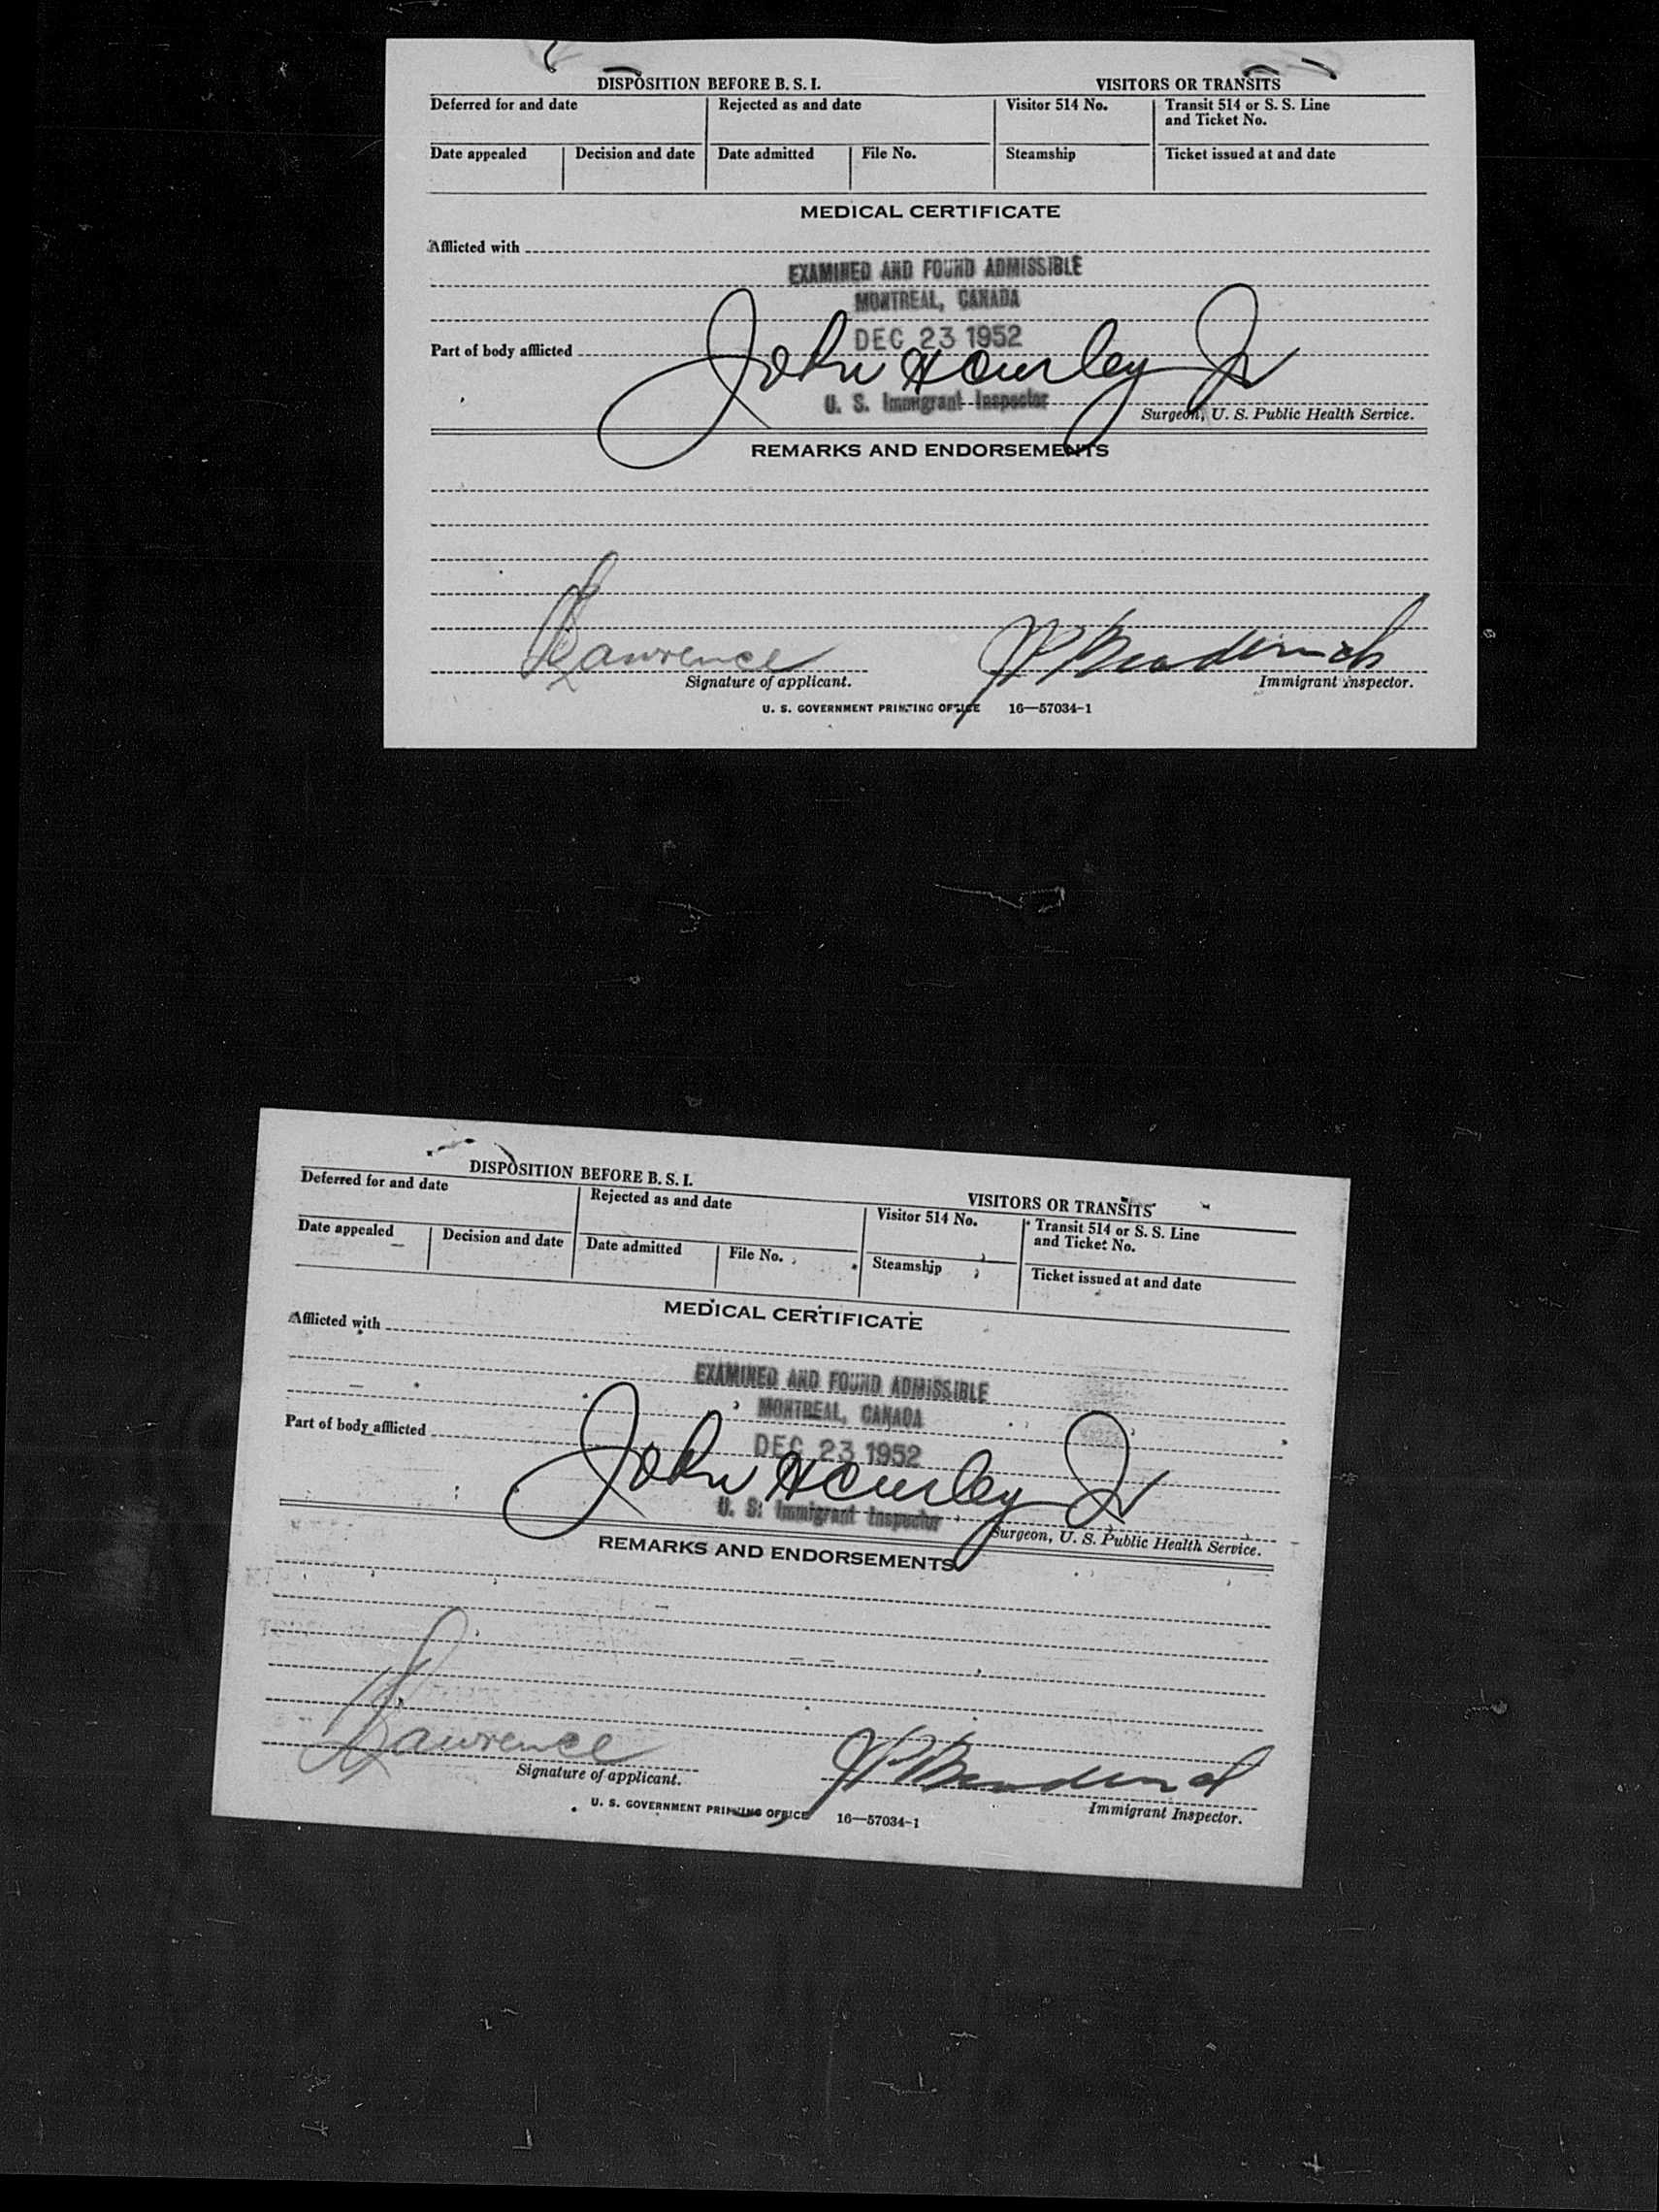 DISPOSITION BEFORE B. S. I. VISITORS OR TRANSITS
Deferred for and date Rejected as and date Visitor 514 No. Transit 514 or S. S. Line
and Ticket No.
Date appealed Decision and date Date admitted File No. Steamship Ticket issued at and date
MEDICAL CERTIFICATE
Afflicted with
EXAMINED AND FOUND ADMISSIBLE
MONTREAL, CANADA
DEC 23 1952
Part of body afflicted
John Hourley Jr
U. S. Immigrant Inspector
Surgeon, U. S. Public Health Service.
REMARKS AND ENDORSEMENTS
Lawrence
Signature of applicant. Immigrant Inspector.
U. S. GOVERNMENT PRINTING OFFICE 16—57034-1
DISPOSITION BEFORE B. S. I. VISITORS OR TRANSITS
Deferred for and date Rejected as and date Visitor 514 No. Transit 514 or S. S. Line
and Ticket No.
Date appealed Decision and date Date admitted File No. Steamship Ticket issued at and date
MEDICAL CERTIFICATE
Afflicted with
EXAMINED AND FOUND ADMISSIBLE
MONTREAL, CANADA
DEC 23 1952
Part of body afflicted
John Hourley Jr
U. S. Immigrant Inspector
Surgeon, U. S. Public Health Service.
REMARKS AND ENDORSEMENTS
Lawrence
Signature of applicant. Immigrant Inspector.
U. S. GOVERNMENT PRINTING OFFICE 16—57034-1